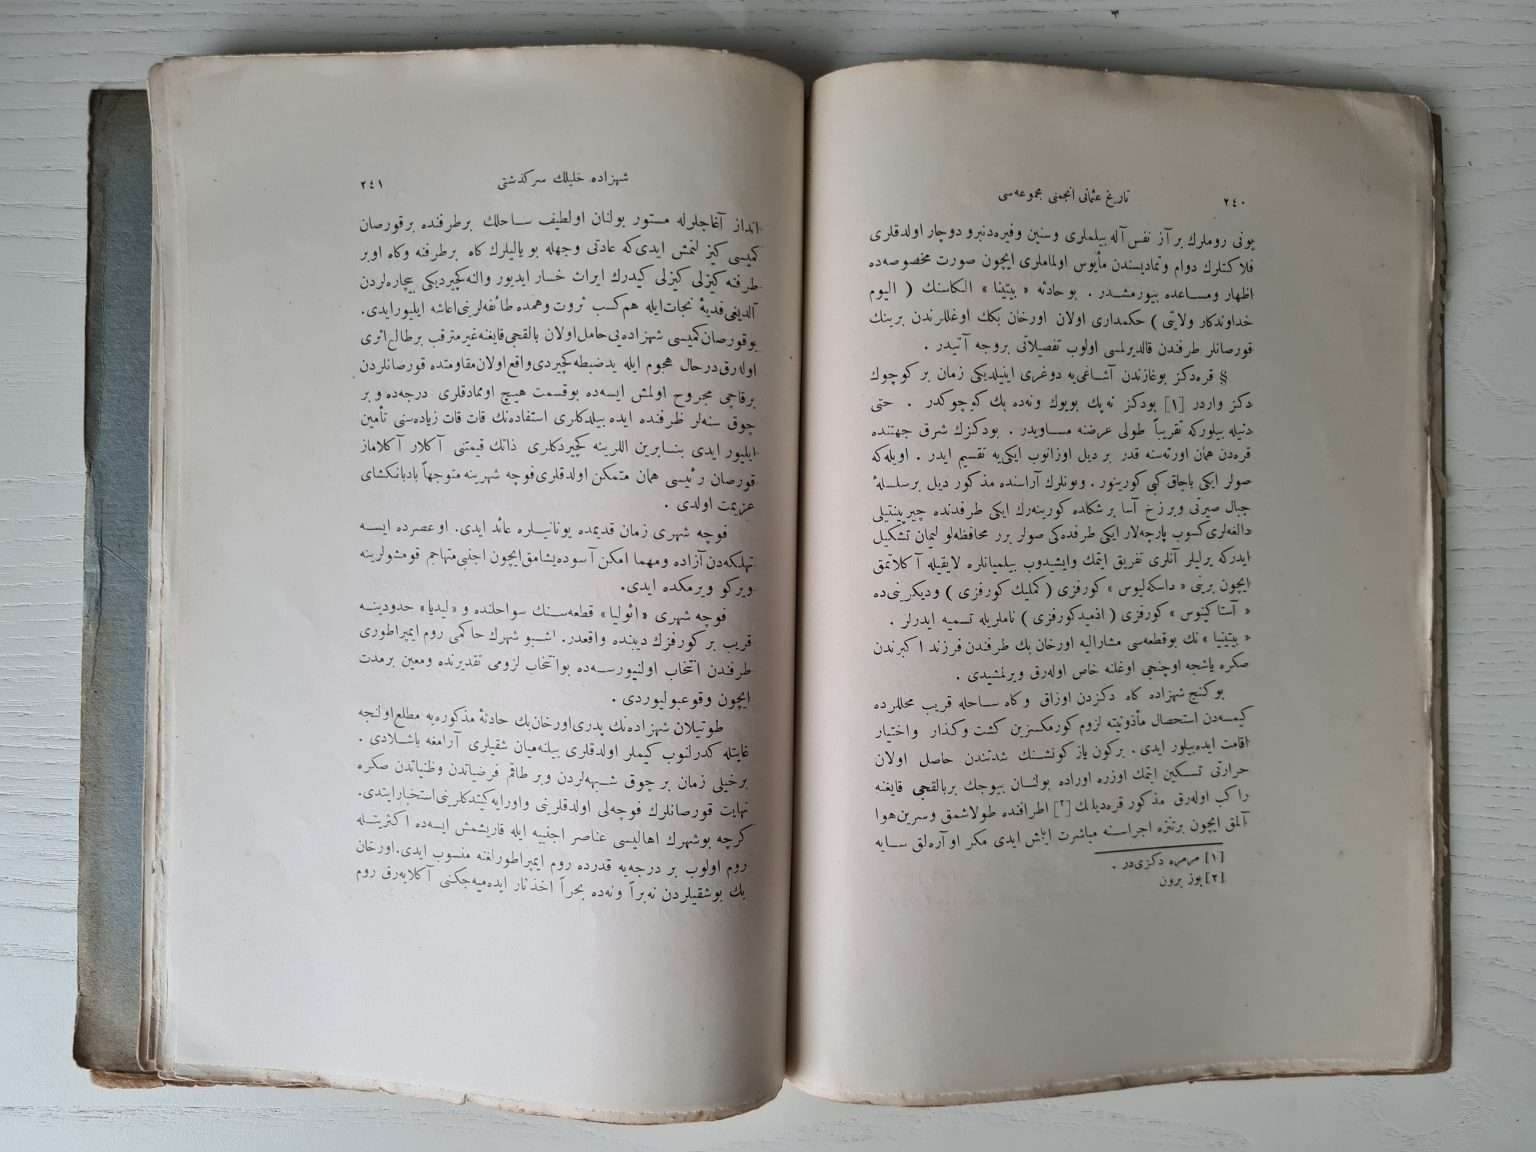 ٢٤٠ تاريخ عثمانى انجمنى مجموعه‌سى
يونى روملرك بر آز نفس آله بيلملرى وسنين وفيره‌دنبرو دوچار اولدقلرى
فلاكتلرك دوام وتماديسندن مأيوس اولماملرى ايچون صورت مخصوصه‌ده
اظهار ومساعده بيورمشدر . بو حادثه « بيتينا » الكاسنك ( اليوم
خداوندكار ولايتى ) حكمدارى اولان اورخان بكك اوغللرندن برينك
قورصانلر طرفندن قالديرلمسى اولوب تفصيلاتى بروجه آتيدر .
§ قره‌دكز بوغازندن آشاغى‌يه دوغرى اينيلديكى زمان بر كوچوك
دكز واردر [١] بودكز نه‌پك بويوك ونه‌ده پك كوچوكدر . حتى
دنيله بيلوركه تقريباً طولى عرضنه مساويدر . بودكزك شرق جهتنده
قره‌دن همان اورته‌سنه قدر بر ديل اوزانوب ايكى‌يه تقسيم ايدر . اويله‌كه
صولر ايكى باجاق كبى كورينور . وبونلرك آراسنده مذكور ديل برسلسلهٔ
جبال صيرتى وبرزخ آسا برشكلده كورينه‌رك ايكى طرفدنده چيرپينتيلى
دالغه‌لرى كسوب پارچه‌لار ايكى طرفده‌كى صولر برر محافظه‌لو ليمان تشكيل
ايدركه يرليلر آنلرى تفريق ايتمك وايشيدوب بيلميانلره لايقيله آكلاتمق
ايچون برينى « داسكه‌ليوس » كورفزى ( كمليك كورفزى ) وديكرينى‌ده
« آستاكينوس » كورفزى ( ازميد كورفزى ) ناملريله تسميه ايدرلر .
« بيتينيا » نك بوقطعه‌سى مشاراليه اورخان بك طرفندن فرزند اكبرندن
صكره ياشجه اوچنجى اوغلنه خاص اوله‌رق ويرلمشيدى .
بو كنج شهزاده كاه دكزدن اوزاق وكاه ساحله قريب محللرده
كيمسه‌دن استحصال مأذونيته لزوم كورمكسزين كشت وكذار واختيار
اقامت ايده‌بيلور ايدى . بركون ياز كونشنك شدتندن حاصل اولان
حرارتى تسكين ايتمك اوزره اوراده بولنان بيوجك بربالقجى قايغنه
راكب اوله‌رق مذكور قره‌ديلك [٢] اطرافنده طولاشمق وسرين هوا
آلمق ايچون برتنزه اجراسنه مباشرت ايتمش ايدى مكر او آره‌لق سايه
[١] مرمره دكزى‌در .
[٢] بوز برون
شهزاده خليلك سركذشتى ٢٤١
انداز آغاجلرله مستور بولنان اولطيف ساحلك برطرفنده برقورصان
كميسى كيزلنمش ايدى‌كه عادتى وجهله بو ياليلرك كاه برطرفنه وكاه اوبر
طرفنه كيزلى كيزلى كيدرك ايراث خسار ايديور والنه كچيرديكى بيچاره‌لردن
آلديغى فديهٔ نجات ايله هم كسب ثروت وهمده طائفه‌لرينى اعاشه ايليورايدى.
بوقورصان كميسى شهزاده‌يى حامل اولان بالقجى قايغنه غيرمترقب برطالع اثرى
اوله‌رق درحال هجوم ايله يدضبطه كچيردى واقع اولان مقاومتده قورصانلردن
برقاچى مجروح اولمش ايسه‌ده بوقسمت هيچ اوممادقلرى درجه‌ده و بر
چوق سنه‌لر ظرفنده ايده بيله‌دكلرى استفاده‌نك قات قات زياده‌سنى تأمين
ايليور ايدى بناءبرين اللرينه كچيردكلرى ذاتك قيمتنى آكلار آكلاماز
قورصان رئيسى همان متمكن اولدقلرى فوچه شهرينه متوجهاً بادبانكشاى
عزيمت اولدى .
فوچه شهرى زمان قديمده يونانيلره عائد ايدى. اوعصرده ايسه
تهلكه‌دن آزاده ومهما امكن آسوده يشامق ايچون اجنبى متهاجم قومشولرينه
ويركو ويرمكده ايدى.
فوچه شهرى « ائوليا » قطعه‌سنك سواحلنده و « ليديا » حدودينه
قريب بر كورفزك ديبنده واقعدر. اشبو شهرك حاكمى روم ايمپراطورى
طرفندن انتخاب اولنيورسه‌ده بو انتخاب لزومى تقديرنده ومعين برمدت
ايچون وقوعبوليوردى .
طوتيلان شهزاده‌نك پدرى اورخان بك حادثهٔ مذكوره‌يه مطلع اولنجه
غايتله كدرلنوب كيملر اولدقلرى بيلنه‌ميان شقيلرى آرامغه باشلادى .
برخيلى زمان بر چوق شبهه‌لردن و بر طاقم فرضياتدن وظنياتدن صكره
نهايت قورصانلرك فوچه‌لى اولدقلرينى واورايه كيتدكلرينى استخبار ايتدى.
كرچه بوشهرك اهاليسى عناصر اجنبيه ايله قاريشمش ايسه‌ده اكثريتله
روم اولوب بر درجه‌يه قدرده روم ايمپراطورلغنه منسوب ايدى. اورخان
بك بوشقيلردن نه براً ونه‌ده بحراً اخذ ثار ايده‌ميه‌جكنى آكلايه‌رق روم